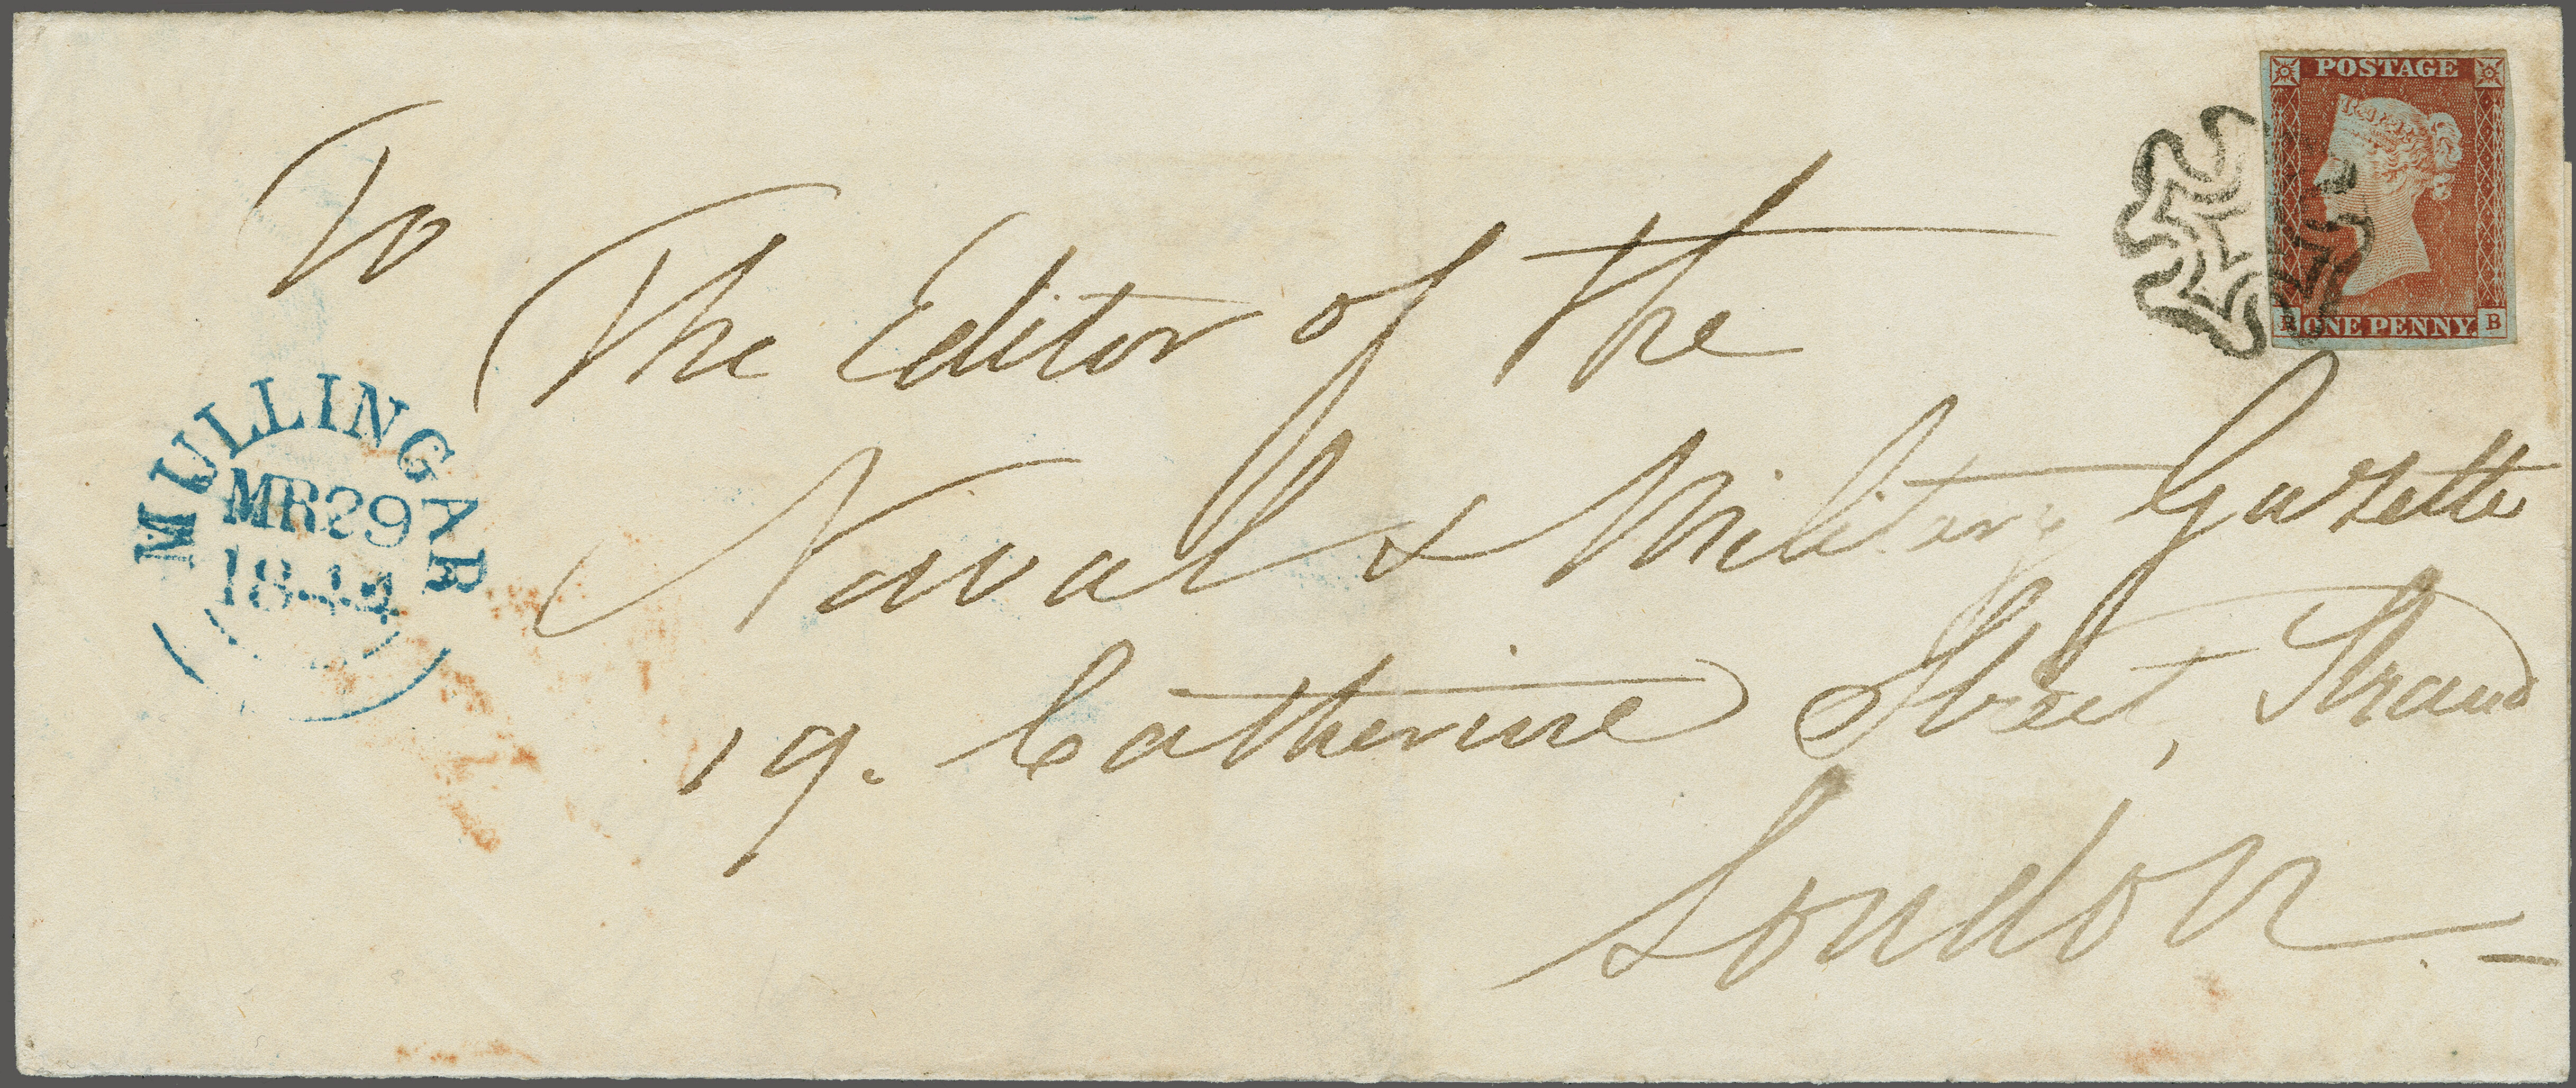 POSTAGE
R ONE PENNY. B
To
The Editor of the
Naval & Military Gazette
19. Catherine Street, Strand
London
MULLINGAR
MR29
1844